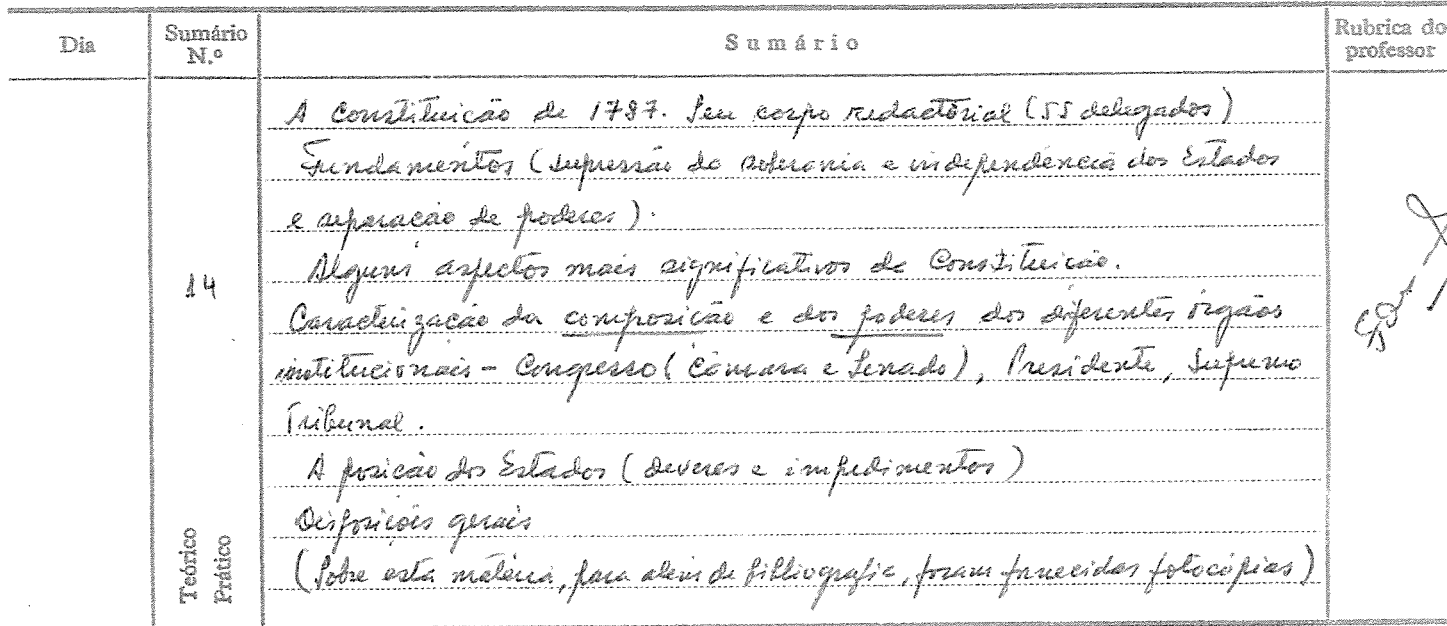 Dia
Sumário N.º
Sumário
Rubrica do professor
A Constituição de 1787. Seu corpo redactorial (55 delegados)
Fundamentos (supressão da soberania e independência dos Estados
e separação de poderes).
Alguns aspectos mais significativos da Constituição.
14
Caracterização da composição e dos poderes dos diferentes órgãos
institucionais - Congresso (Câmara e Senado), Presidente, Supremo
Tribunal.
A posição dos Estados (deveres e impedimentos)
Disposições gerais
Teórico
Prático
(Sobre esta matéria, para além de bibliografia, foram fornecidas fotocópias)